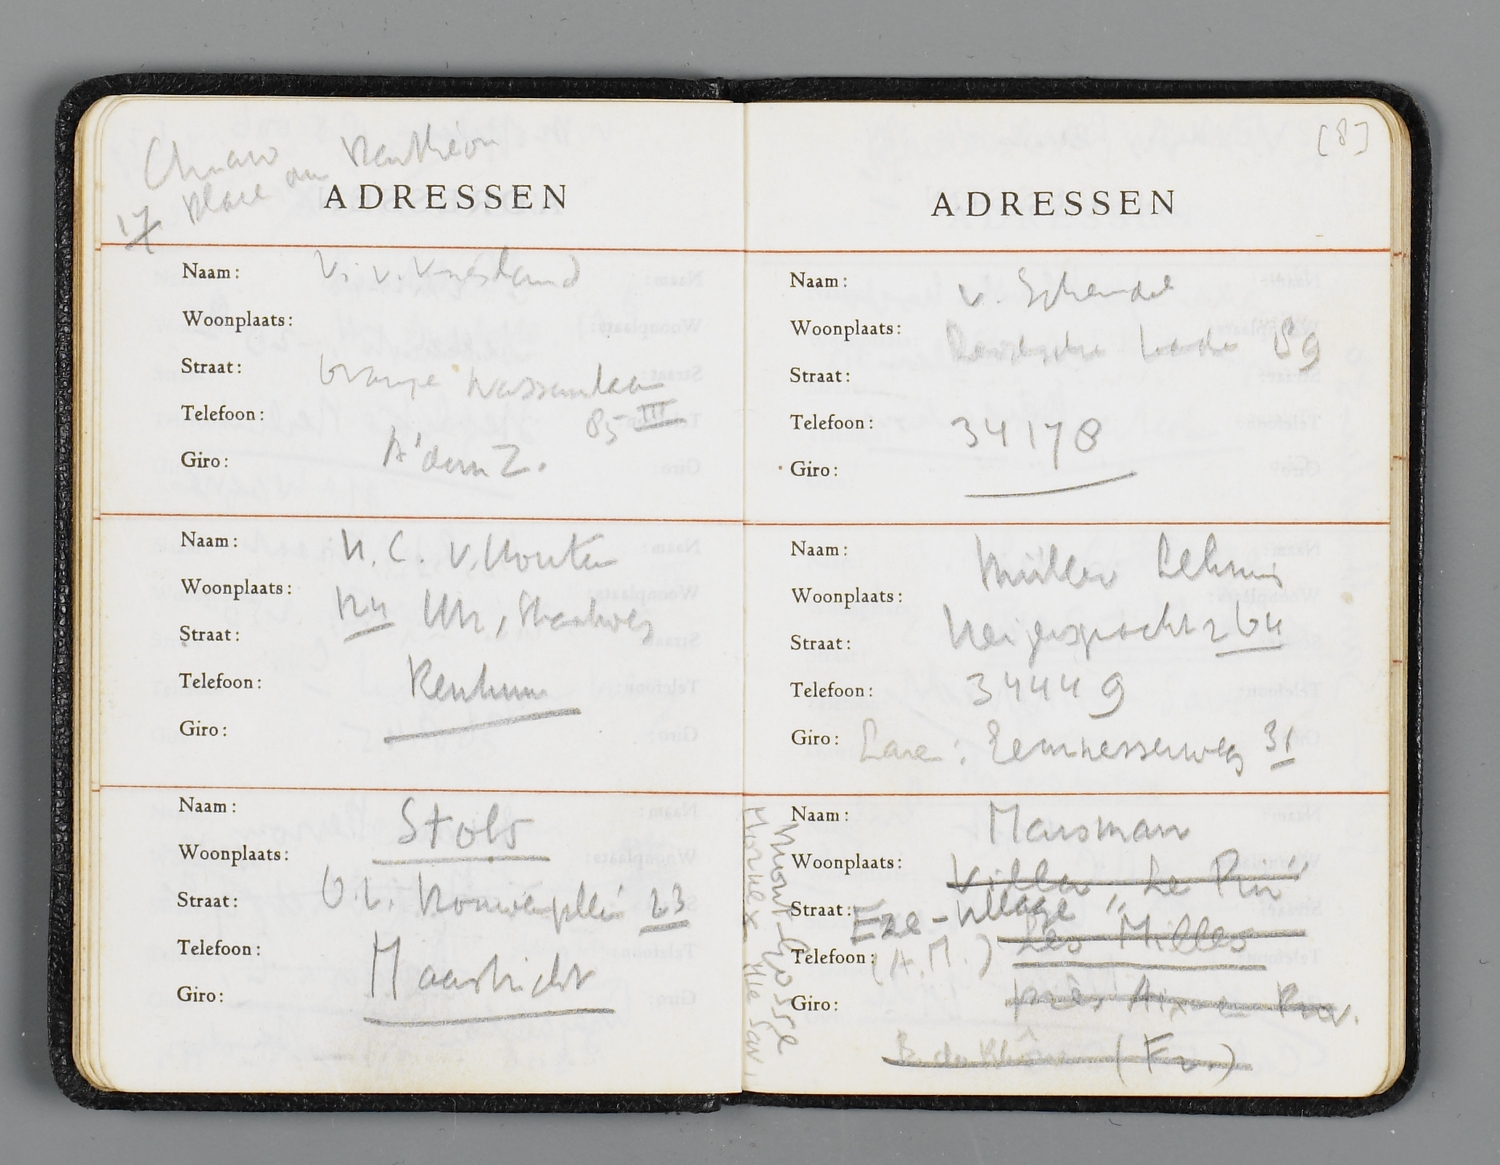 Place du Panthéon
17
ADRESSEN
Naam: V. v. Vriesland
Woonplaats:
Straat: Oranje Nassaulaan
Telefoon: 85 III
Giro: A'dam Z.
Naam: N. C. v. Houten
Woonplaats:
Straat:
Telefoon: Renkum
Giro:
Naam: Stols
Woonplaats:
Straat: 23
Telefoon: Maastricht
Giro:
[8]
ADRESSEN
Naam: v. Schendel
Woonplaats: 59
Straat:
Telefoon: 34178
Giro:
Naam: Müller Lehning
Woonplaats:
Straat: 264
Telefoon: 34449
Giro: : Eemnesserweg 31
Naam: Marsman
Woonplaats: Villa Le Pin"
Straat: Eze-Village "
Les Milles
Telefoon: (A.M.)
Giro: près Aix en Prov.
B. du Rhône (Fr.)
Mont-Gosse
Mornex Hte Sav.